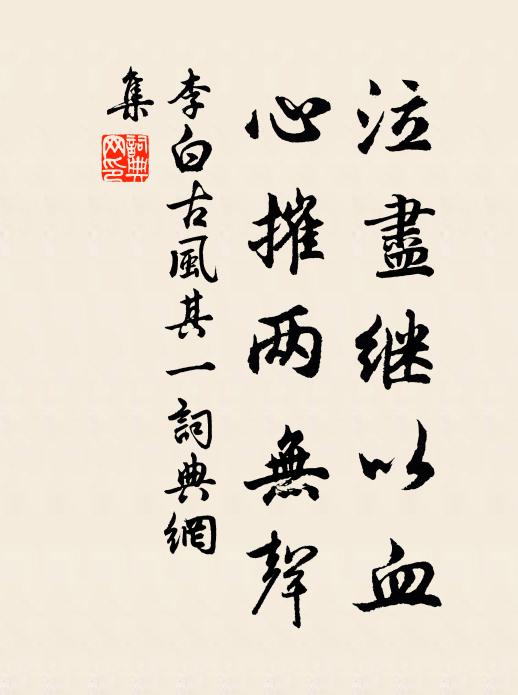 泣盡继以血
心摧两無聲
李白古風其一詞典網
集
詞典
网印